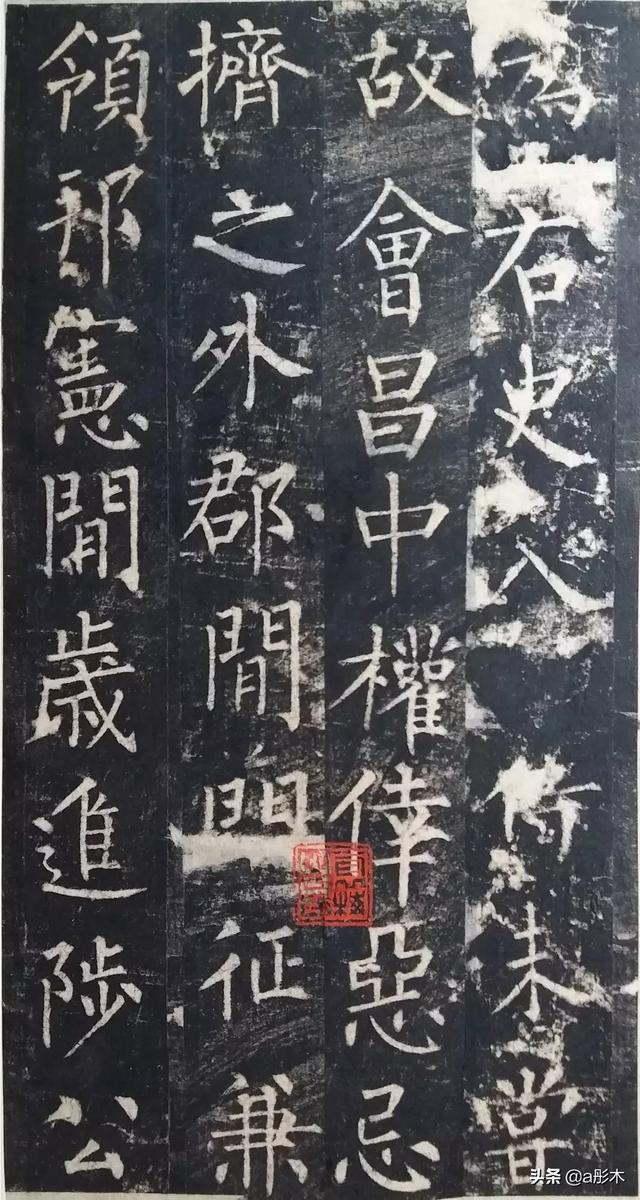 為右史入倚未嘗
故會昌中權倖惡忌
擠之外郡閒征兼
領邦憲閒歲進陟公
头条 @a彤木